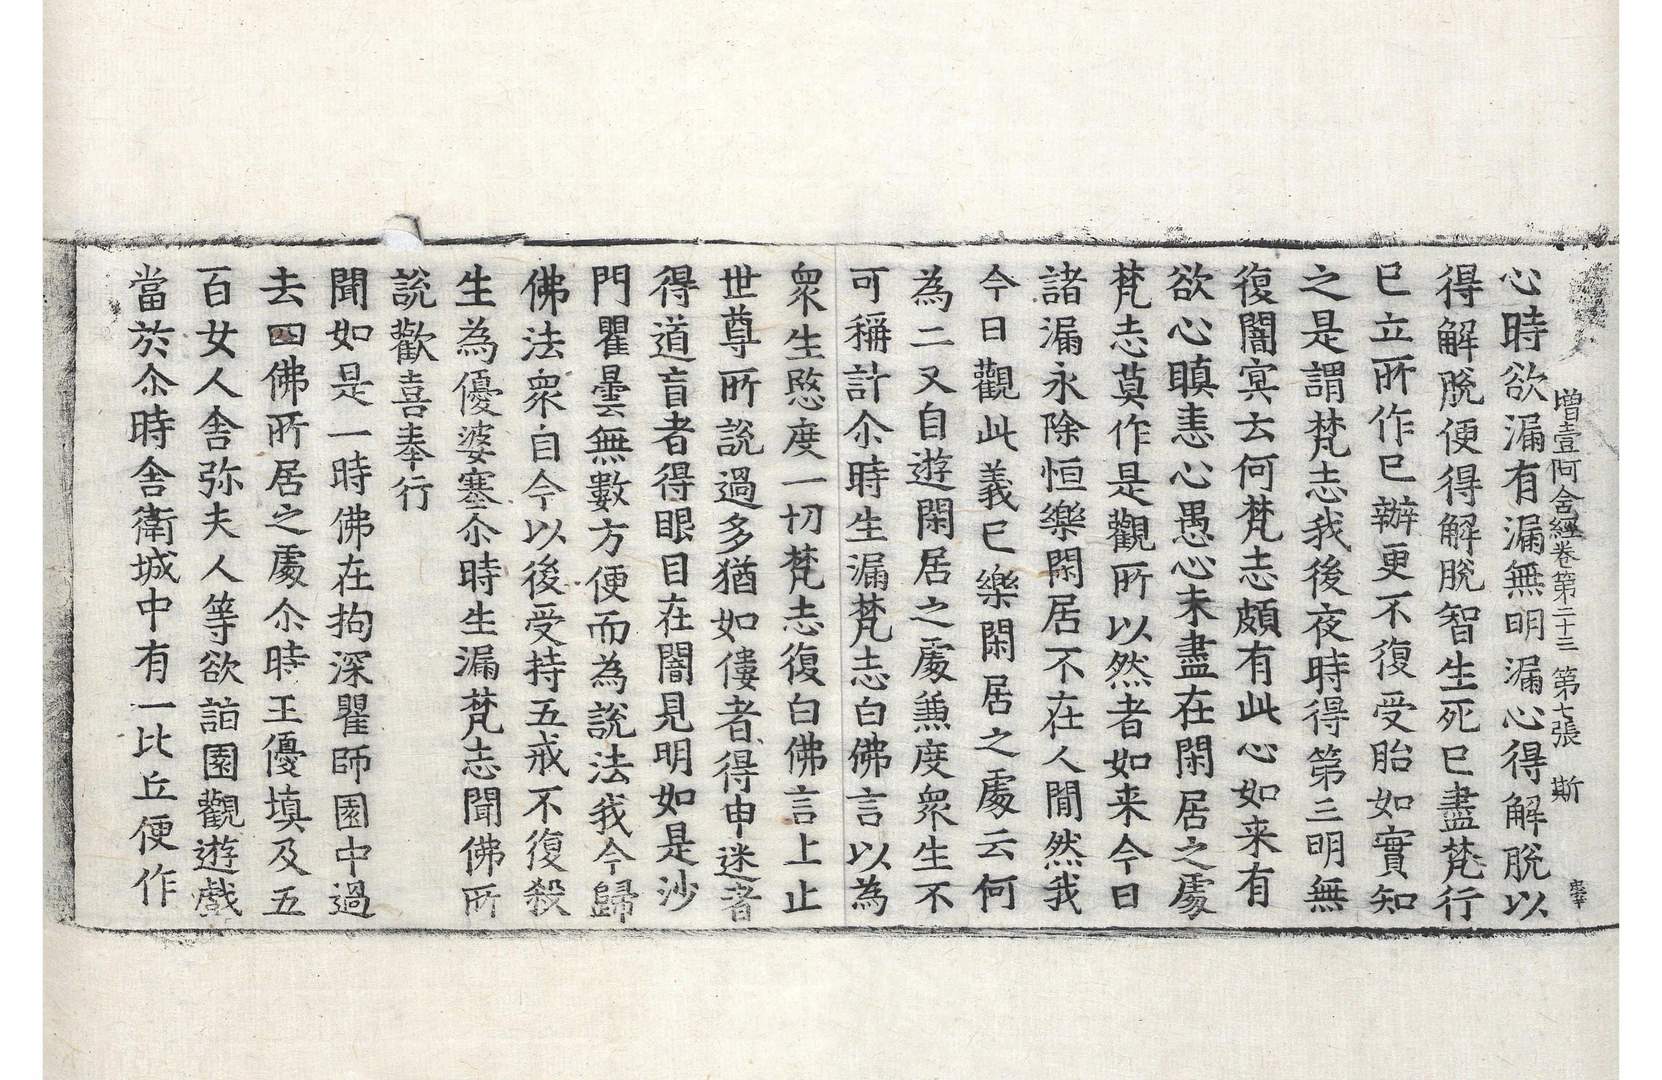 增壹阿含經卷第二十三 第七張 斯
心時欲漏有漏無明漏心得解脫以
得解脫便得解脫智生死已盡梵行
已立所作已辦更不復受胎如實知
之是謂梵志我後夜時得第三明無
復闇冥云何梵志頗有此心如来有
欲心瞋恚心愚心未盡在閑居之處
梵志莫作是觀所以然者如来今日
諸漏永除恒樂閑居不在人間然我
今日觀此義已樂閑居之處云何
為二又自遊閑居之處兼度眾生不
可稱計尒時生漏梵志白佛言以為
眾生愍度一切梵志復白佛言上止
世尊所說過多猶如僂者得申迷者
得道盲者得眼目在闇見明如是沙
門瞿曇無數方便而為說法我今歸
佛法眾自今以後受持五戒不復殺
生為優婆塞尒時生漏梵志聞佛所
說歡喜奉行
聞如是一時佛在拘深瞿師園中過
去四佛所居之處尒時王優填及五
百女人舍弥夫人等欲詣園觀遊戲
當於尒時舍衛城中有一比丘便作